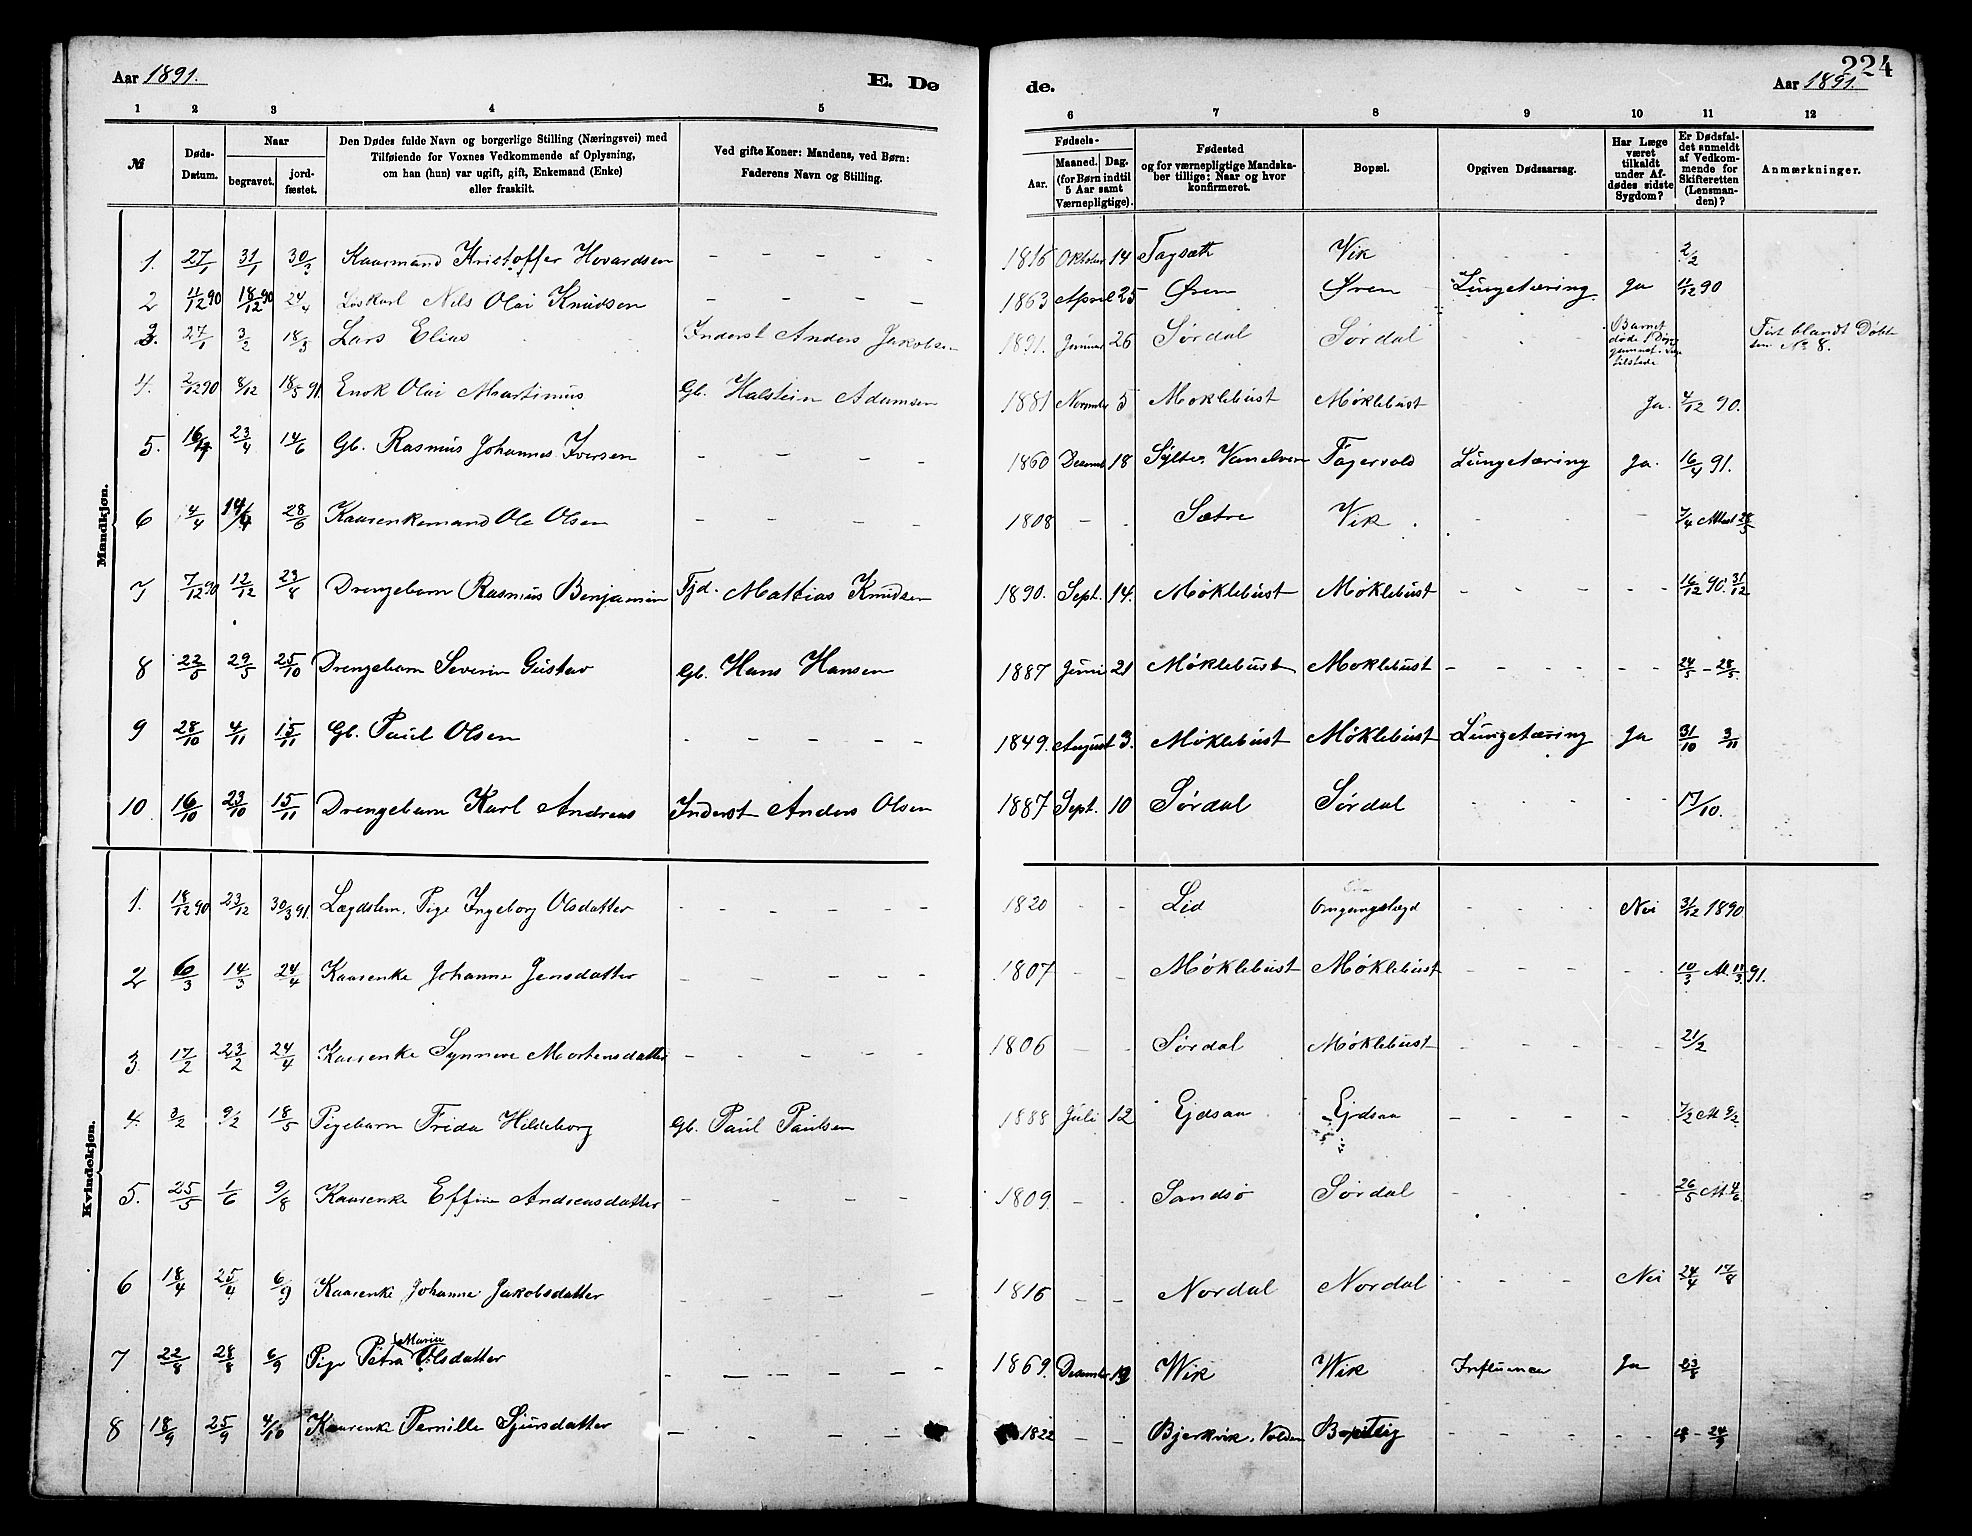 Aar 1891. E. Dø
1 2 3 4 5
№
Døds-Datum.
Naar
begravet.
jord-fæstet.
Den Dødes fulde Navn og borgerlige Stilling (Næringsvei) med
Tilføiende for Voxnes Vedkommende af Oplysning,
om han (hun) var ugift, gift, Enkemand (Enke)
eller fraskilt.
Ved gifte Koner: Mandens, ved Børn:
Faderens Navn og Stilling.
Mandkjøn.
1. 27/1 31/1 30/3 Kaarmand Kristoffer Hovardsen – – – – –
2 11/12 90 18/12 90 24/4 Løskarl Nils Olai Knudsen – – – –
3. 27/1 3/2 18/3 Lars Elias Inderst Anders Jakobsen
4. 2/12 90 8/12 18/5 91 Enok Olai Martinus Gb. Halstein Adamsen
5. 16/4 23/4 14/6 Gb. Rasmus Johannes Iversen – – – –
6 4/4 14/4 28/6 Kaarenkemand Ole Olsen – – – –
7 7/12 90 12/12 23/8 Drengebarn Rasmus Benjamin Fjd. Mattias Knudsen
8 22/5 29/5 25/10 Drengebarn Severin Gustav Gb. Hans Hansen
9 28/10 4/11 15/11 Gb. Paul Olsen – – – – –
10 16/10 23/10 15/11 Drengebarn Karl Andreas Inderst Anders Olsen
Kvindekjøn.
1. 18/12 90 23/12 30/3 91. Lægdslem. Pige Ingeborg Olsdatter – – – – –
2 6/3 14/3 24/4 Kaarenke Johanne Jensdatter – – – – –
3 17/2 23/2 24/4 Kaarenke Synneve Mortensdatter – – – – –
4. 3/2 9/2 18/5 Pigebarn Frida Hildeborg Gb. Paul Paulsen
5. 25/5 1/6 9/8 Kaarenke Effine Andreasdatter – – – –
6 18/4 25/4 6/9 Kaarenke Johanne Jakobsdatter – – – – –
7 22/8 28/8 6/9 Pige Petra Maria Olsdatter – – – – –
8 18/9 25/9 4/10 Kaarenke Pernille Sjursdatter – – – –
de. Aar 1891. 224
6 7 8 9 10 11 12
Fødsels-
Aar.
Maaned. Dag.
(for Børn indtil
5 Aar samt
Værnepligtige).
Fødested
og for værnepligtige Mandska-
ber tillige: Naar og hvor
konfirmeret.
Bopæl.
Opgiven Dødsaarsag.
Har Læge
været
tilkaldt
under Af-
dødes sidste
Sygdom?
Er Dødsfal-
det anmeldt
af Vedkom-
mende for
Skifteretten
(Lensman-
den)?
Anmærkninger.
1816 Oktober 14 Vik 2/2
1863 April 25 Øren Øren Lungetæring. Ja 11/12 90
1891. Januar 26 Sørdal Sørdal Barnet døde tilstede blandt Døbte No 8.
1881 Novmbr 5 Møklebust Møklebust Ja. 4/12 90.
1860 Desemb 18 Sylte, Vanelven Fagervold Lungetæring Ja. 16/4 91.
1808 – Sætre Vik. 7/4
1890. Sept. 14. Møklebust Møklebust – – – – 16/12 90. 31/12
1887 Juni 21 Møklebust Møklebust – – – – 24/5 – 28/5.
1849. August 3. Møklebust Møklebust Lungetæring Ja 31/10 3/11
1887 Sept. 10 Sørdal Sørdal 17/10.
1820 – – Lid Omgangslægd Nei 31/12 1890
1807 – – Møklebust Møklebust 10/3 M. 11/3. 91.
1806 – – Sørdal Møklebust 21/2
1888 Juli 12 Ejdsaa Ejdsaa 7/2 M 9/2
1809. – – Sandsø Sørdal 26/5 M. 4/6
1816 – – Nordal Nordal Nei 24/4 17/8
1869. Desember Wik Wik Influensa Ja 23/8
1822 – – Bjerkvik, Volden – – – – – 24/9